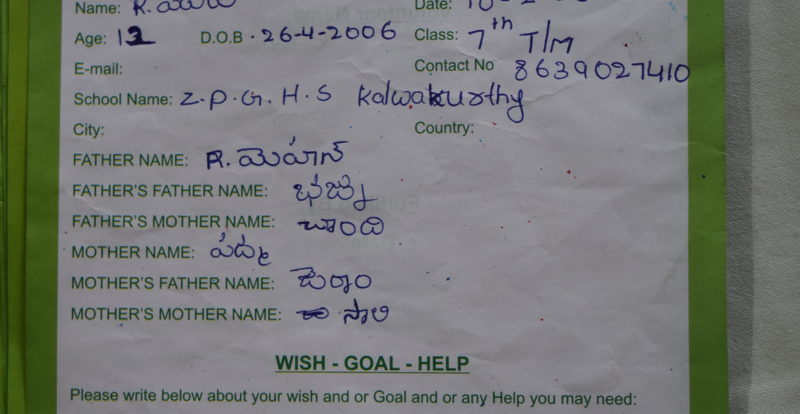 Name: R.
Date:
Age: 12 D.O.B. 26-4-2006 Class: 7th T/M
E-mail: Contact No 8639027410
School Name: Z.P.G.H.S Kalwakurthy
City: Country:
FATHER NAME: R. మోహన్
FATHER'S FATHER NAME:
FATHER'S MOTHER NAME: చాంది
MOTHER NAME: పద్మ
MOTHER'S FATHER NAME:
MOTHER'S MOTHER NAME: సాలి
WISH - GOAL - HELP
Please write below about your wish and or Goal and or any Help you may need: